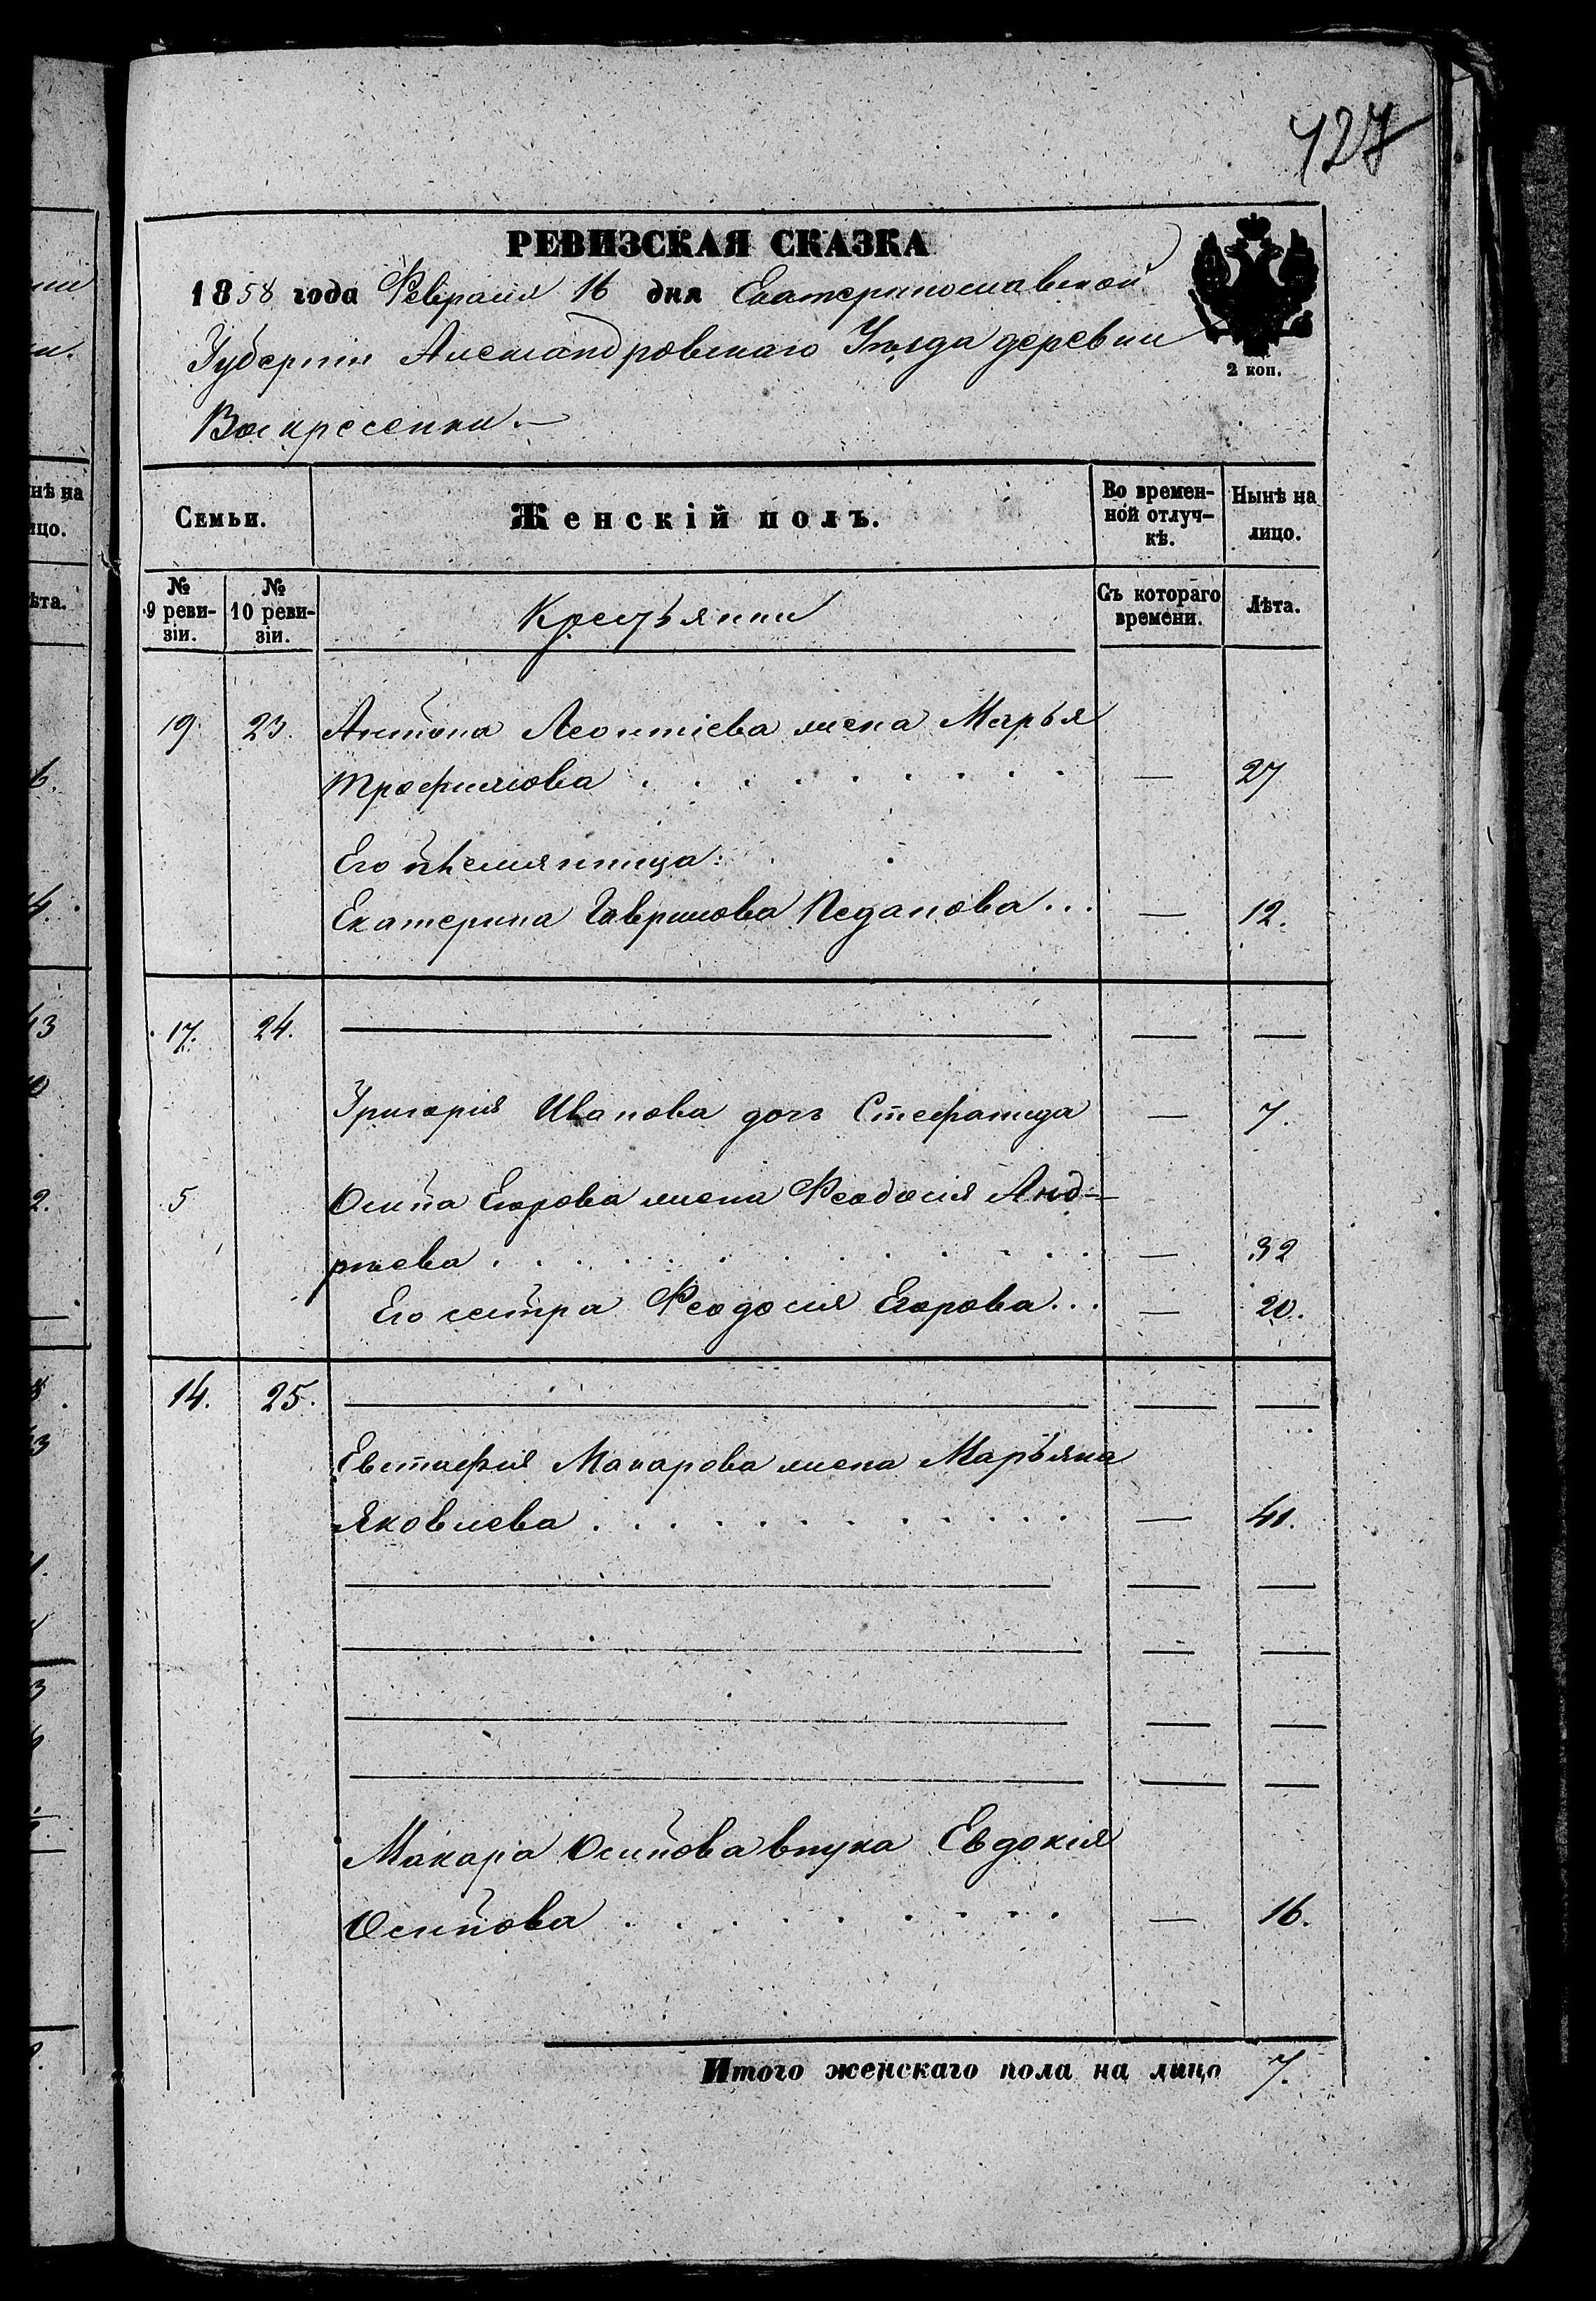 427
РЕВИЗСКАЯ СКАЗКА
1858 года Февраля 16 дня Екатеринославской
Губернiи Александровскаго Уѣзда деревни
Воскресенки.
2 коп.
Семьи.
Женскій полъ.
Во времен-
ной отлуч-
кѣ.
Нынѣ на
лицо.
№
9 реви-
зіи.
№
10 реви-
зіи.
Крестьянки
Съ котораго
времени.
Лѣта.
19. 23. Антона Леонтiева жена Марья
Трофимова . . . . . . . . — 27
Его племянница:
Екатерина Гаврилова Педанова... — 12.
17. 24. — — —
Григорiя Иванова дочь Стефанида — 7.
5 Осипа Егорова жена Феодосiя Анд-
рѣева . . . . . . . . . — 32
Его сестра Феодосiя Егорова... — 20.
14. 25. — — —
Евстафiя Макарова жена Марьяна
Яковлева . . . . . . . . . — 41.
— — —
— — —
— — —
— — —
Макара Осипова внука Евдокiя
Осипова . . . . . . . . . — 16.
Итого женскаго пола на лицо 7.